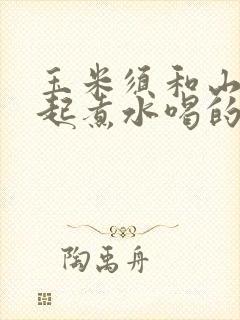 玉米须和山
起煮水喝的
陶禹舟